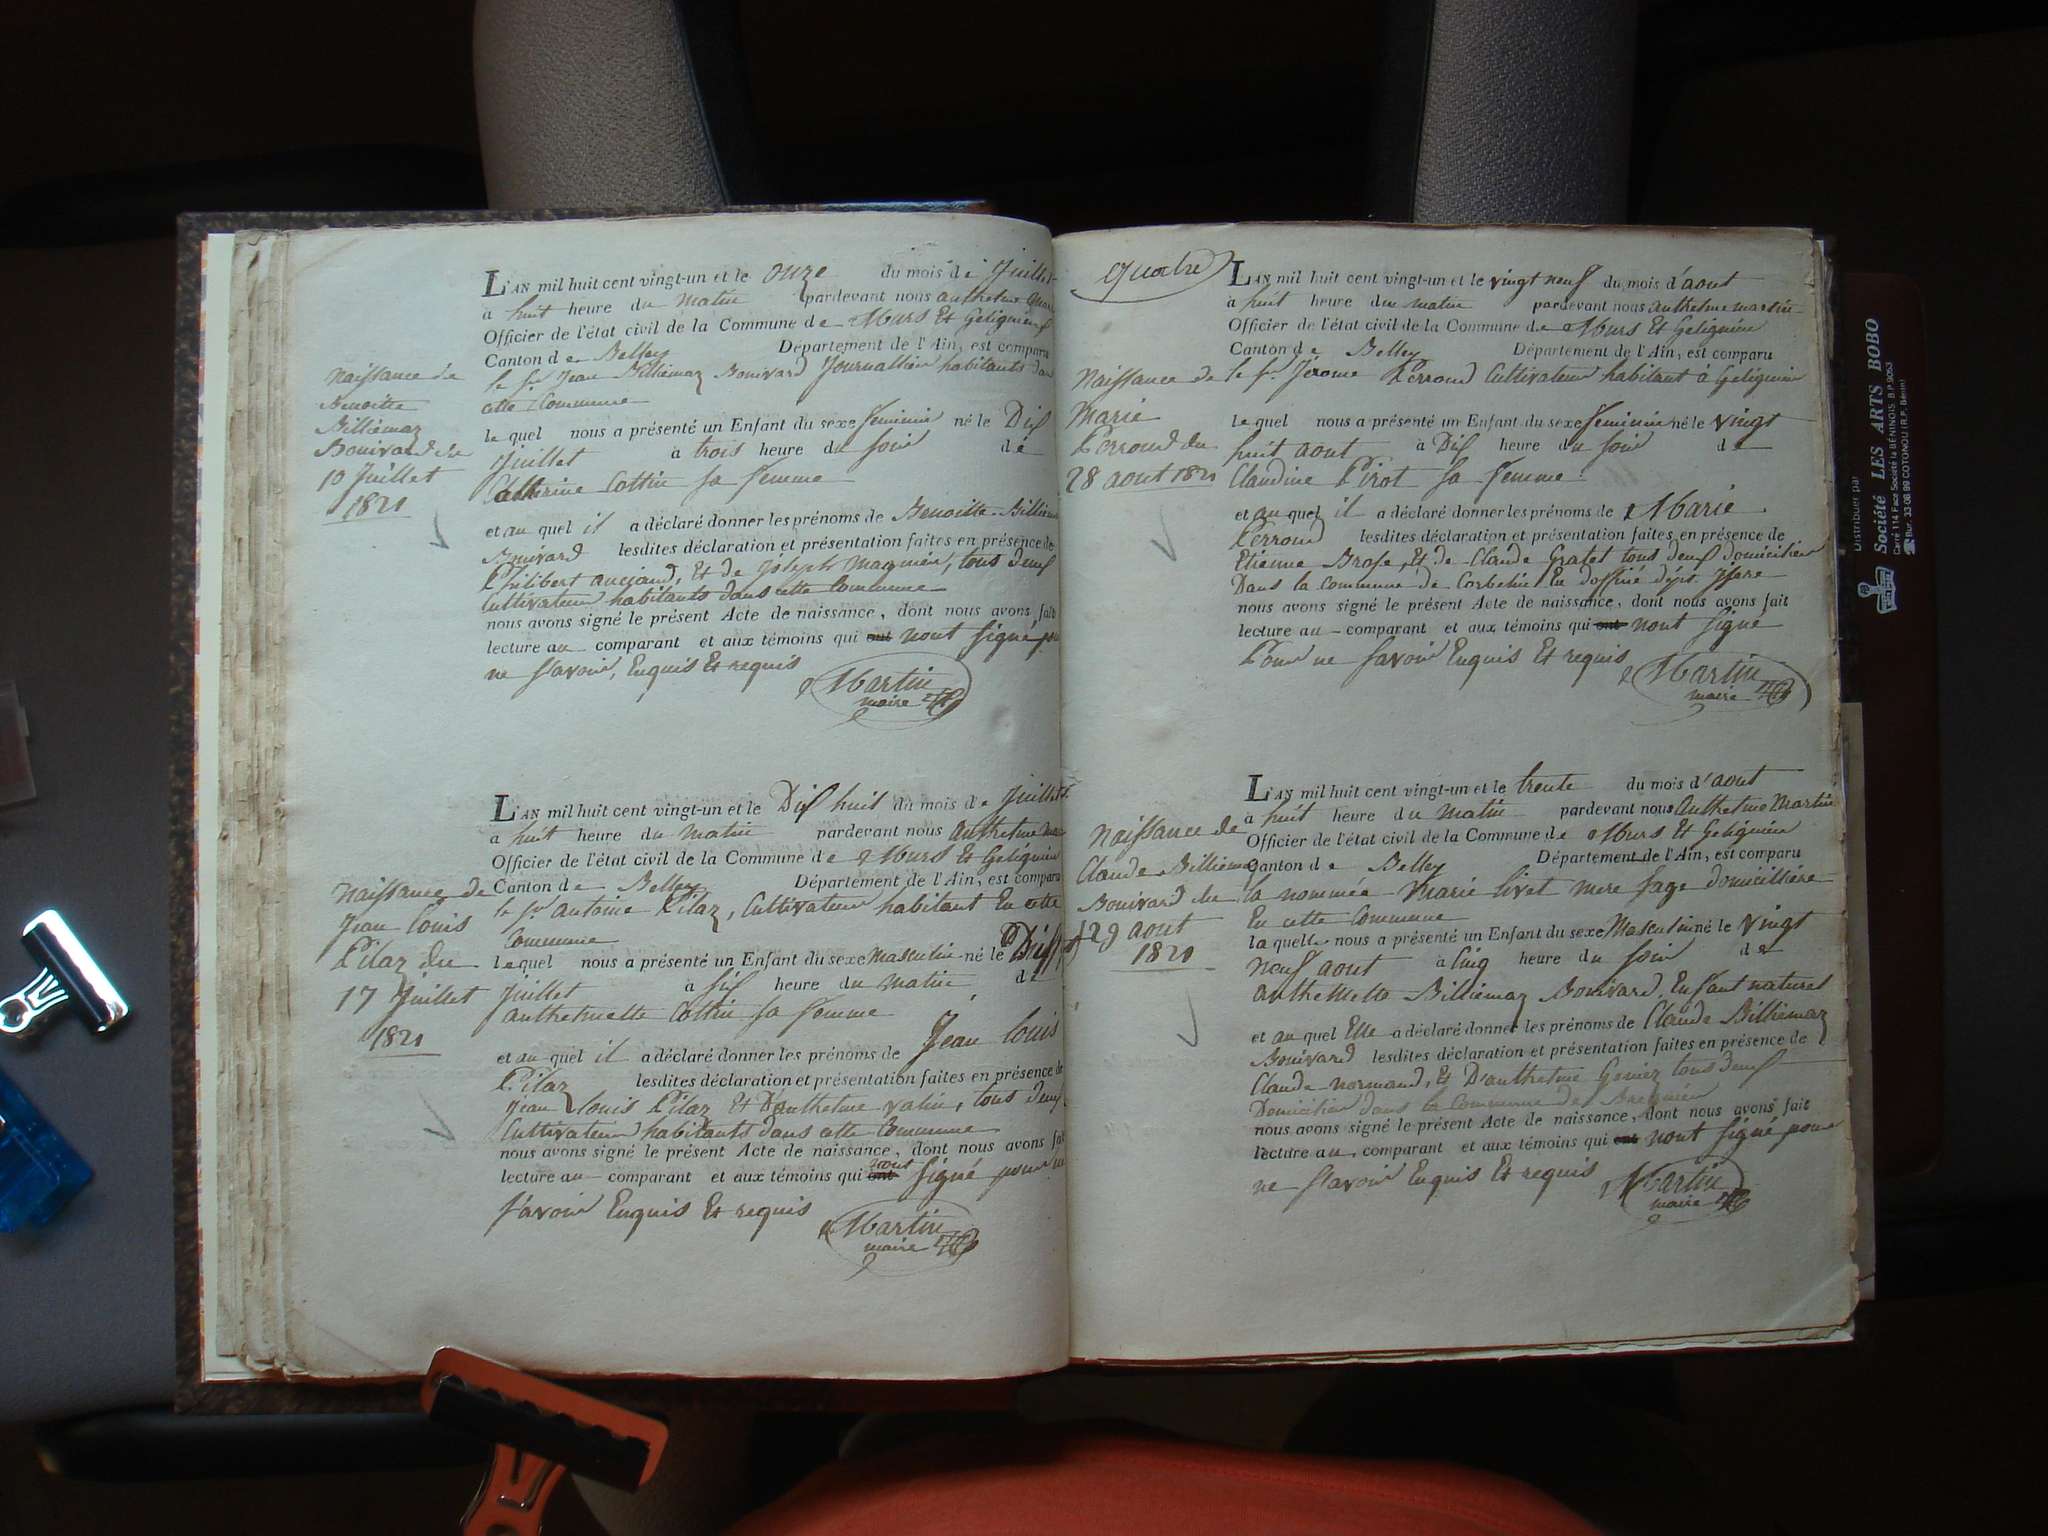 L'AN mil huit cent vingt-un et le onze du mois de Juillet
à huit heure du matin pardevant nous anthelme
Officier de l'état civil de la Commune de Murs Et Gelignieux
Canton de Belley Département de l'Ain, est comparu
le Sr Jean Billiemaz Bouivard Journallier habitants dans
cette Commune
le quel nous a présenté un Enfant du sexe feminin né le Dix
Juillet à trois heure du soir de
Catherine Cottin sa femme
et au quel il a déclaré donner les prénoms de Benoitte Billiemaz
Bouivard lesdites déclaration et présentation faites en présence de
Philibert anciand, Et de joseph Magnien, tous deux
Cultivateur habitants dans cette Commune
nous avons signé le présent Acte de naissance, dont nous avons fait
lecture au comparant et aux témoins qui ont nont signé pour
ne savoir, Enquis Et requis
Martin
maire
Naissance de
Benoitte
Billiemaz
Bouivard du
10 Juillet
1821
L'AN mil huit cent vingt-un et le Dix huit du mois de Juillet
a huit heure du matin pardevant nous anthelme
Officier de l'état civil de la Commune de Murs Et Gelignieux
Canton de Belley Département de l'Ain, est comparu
le Sr antoine Pilaz, Cultivateur habitant En cette
Commune
le quel nous a présenté un Enfant du sexe masculin né le Dix sept
Juillet à six heure du matin de
anthelmette Cottin sa femme
et au quel il a déclaré donner les prénoms de Jean Louis
Pilaz lesdites déclaration et présentation faites en présence de
Jean Louis Pilaz Et D'anthelme valin, tous deux
Cultivateur habitants dans cette Commune
nous avons signé le présent Acte de naissance, dont nous avons fait
lecture au comparant et aux témoins qui ont nont signé pour ne
savoir Enquis Et requis
Martin
maire
Naissance de
Jean Louis
Pilaz du
17 Juillet
1821
Quatre
L'AN mil huit cent vingt-un et le vingt neuf du mois d'aout
à huit heure du matin pardevant nous anthelme martin
Officier de l'état civil de la Commune de Murs Et Gelignieux
Canton de Belley Département de l'Ain, est comparu
le Sr Jérome Perroud Cultivateur habitant à Gelignieux
le quel nous a présenté un Enfant du sexe feminin né le vingt
huit aout à Dix heure du soir de
Claudine Pirot sa femme
et au quel il a déclaré donner les prénoms de Marie
Perroud lesdites déclaration et présentation faites en présence de
Etienne Brose, Et de Claude Gratet tous deux domicilier
Dans la commune de Corbelin En doffiné dépt Isere
nous avons signé le présent Acte de naissance, dont nous avons fait
lecture au comparant et aux témoins qui ont nont signé
Pour ne savoir Enquis Et requis
Martin
maire
Naissance de
Marie
Perroud du
28 aout 1821
L'AN mil huit cent vingt-un et le trente du mois d'aout
à huit heure du matin pardevant nous Anthelme Martin
Officier de l'état civil de la Commune de Murs Et Gelignieux
Canton de Belley Département de l'Ain, est comparu
la nommée Marie livet mere sage domicilliere
En cette Commune
la quelle nous a présenté un Enfant du sexe Masculin né le vingt
neuf aout à Cinq heure du soir de
anthelmette Billiemaz Bouivard, Enfant naturel
et au quel Elle a déclaré donner les prénoms de Claude Billiemaz
Bouivard lesdites déclaration et présentation faites en présence de
Claude normand, Et D'anthelme Geniez tous deux
Domicilier dans la Commune de Bregnier
nous avons signé le présent Acte de naissance, dont nous avons fait
lecture au comparant et aux témoins qui ont nont signé pour
ne savoir Enquis Et requis
Martin
maire
Naissance de
Claude Billiemaz
Bouivard du
29 aout
1821
Distribuer par
Société LES ARTS BOBO
Carré 114 Face Société la BÉNINOIS, B.P 9053
Bur. 33-08 99 COTONOU (R.P. Bénin)